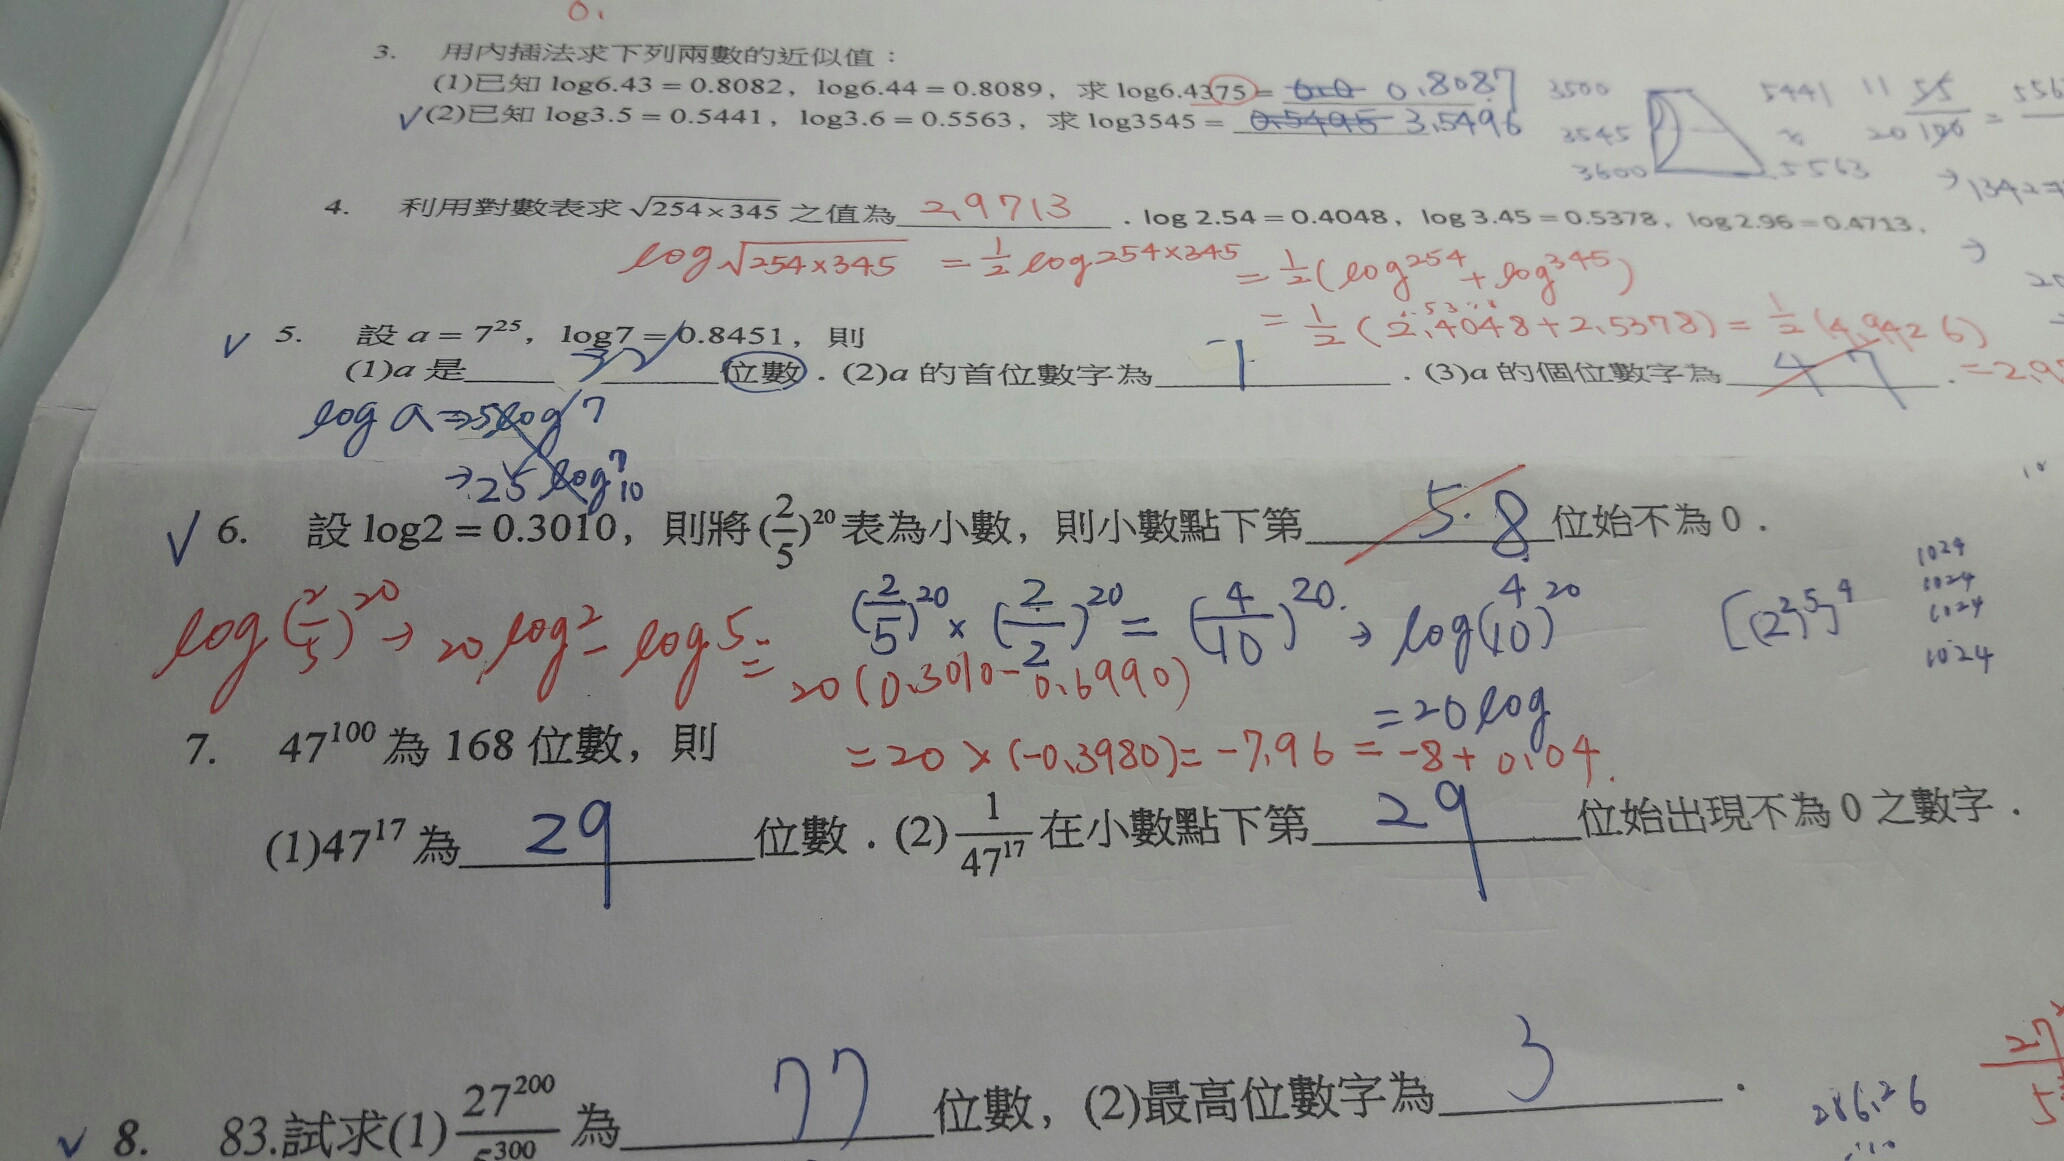 0.
3. 用內插法求下列兩數的近似值：
(1)已知 log6.43 = 0.8082，log6.44 = 0.8089，求 log6.4375 = 0.8087
(2)已知 log3.5 = 0.5441，log3.6 = 0.5563，求 log3545 = 0.5495 3.5496
3500 5441 11 55
3545 x 20 100 =
3600 5563
4. 利用對數表求 √254×345 之值為 2.9713 . log 2.54 = 0.4048，log 3.45 = 0.5378，log 2.96 = 0.4713.
log √254×345 = 1/2 log 254×345 = 1/2 (log 254 + log 345)
= 1/2 (2.4048 + 2.5378) = 1/2 (4.9426)
5. 設 a = 7²⁵，log7 = 0.8451，則
(1)a 是 位數．(2)a 的首位數字為 1 ．(3)a 的個位數字為 4 7 .
log a ⇒ 25 log 7
→ 25 log 7 10
6. 設 log2 = 0.3010，則將 (2/5)²⁰ 表為小數，則小數點下第 5. 8 位始不為 0．
log (2/5)²⁰ → 20 log 2 - log 5 =
20 (0.3010 - 0.6990)
= 20 × (-0.3980) = -7.96 = -8 + 0.04.
(2/5)²⁰ × (2/2)²⁰ = (4/10)²⁰. → log (4/10)²⁰
= 20 log
[(2²)⁵]⁴
1024
1024
1024
1024
7. 47¹⁰⁰ 為 168 位數，則
(1)47¹⁷ 為 29 位數．(2) 1/47¹⁷ 在小數點下第 29 位始出現不為 0 之數字．
8. 83.試求(1) 27²⁰⁰/5³⁰⁰ 為 77 位數，(2)最高位數字為 3 .
286.26
27
5